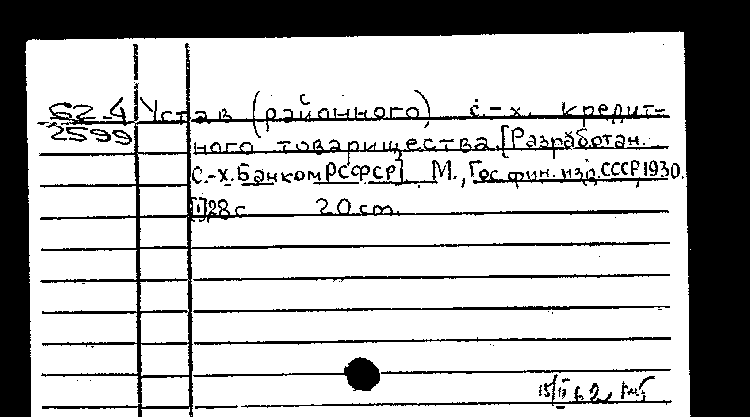 62-4 Устав (районного) с.-х. кредит-
2599 ного товарищества.[Разработан.
С.-Х.Банком РСФСР]. М., Гос.фин.изд.СССР,1930.
[1]28 с 20 cm.
15/II 62